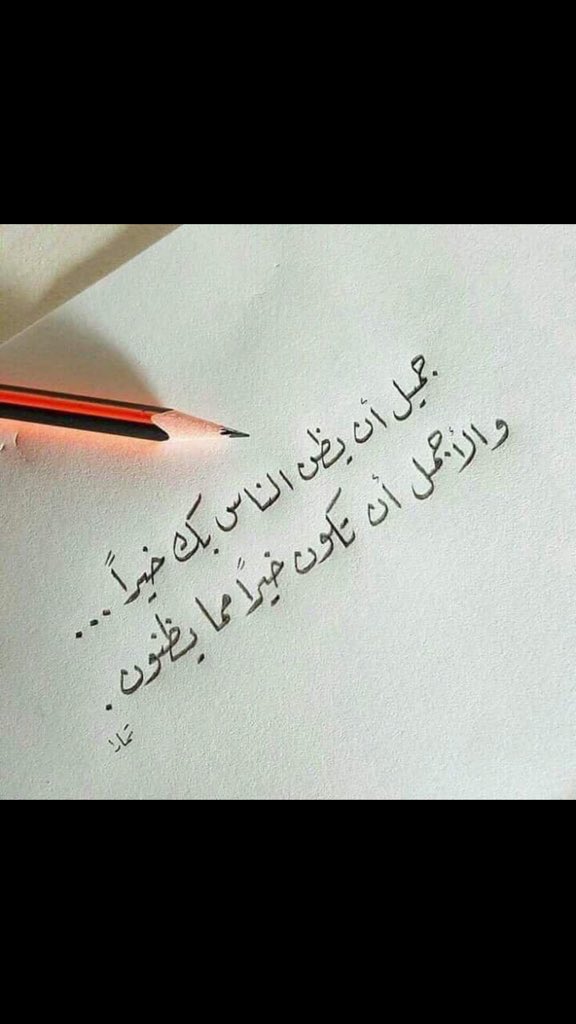 جميل أن يظن الناس بك خيراً ...
والأجمل أن تكون خيراً مما يظنون .